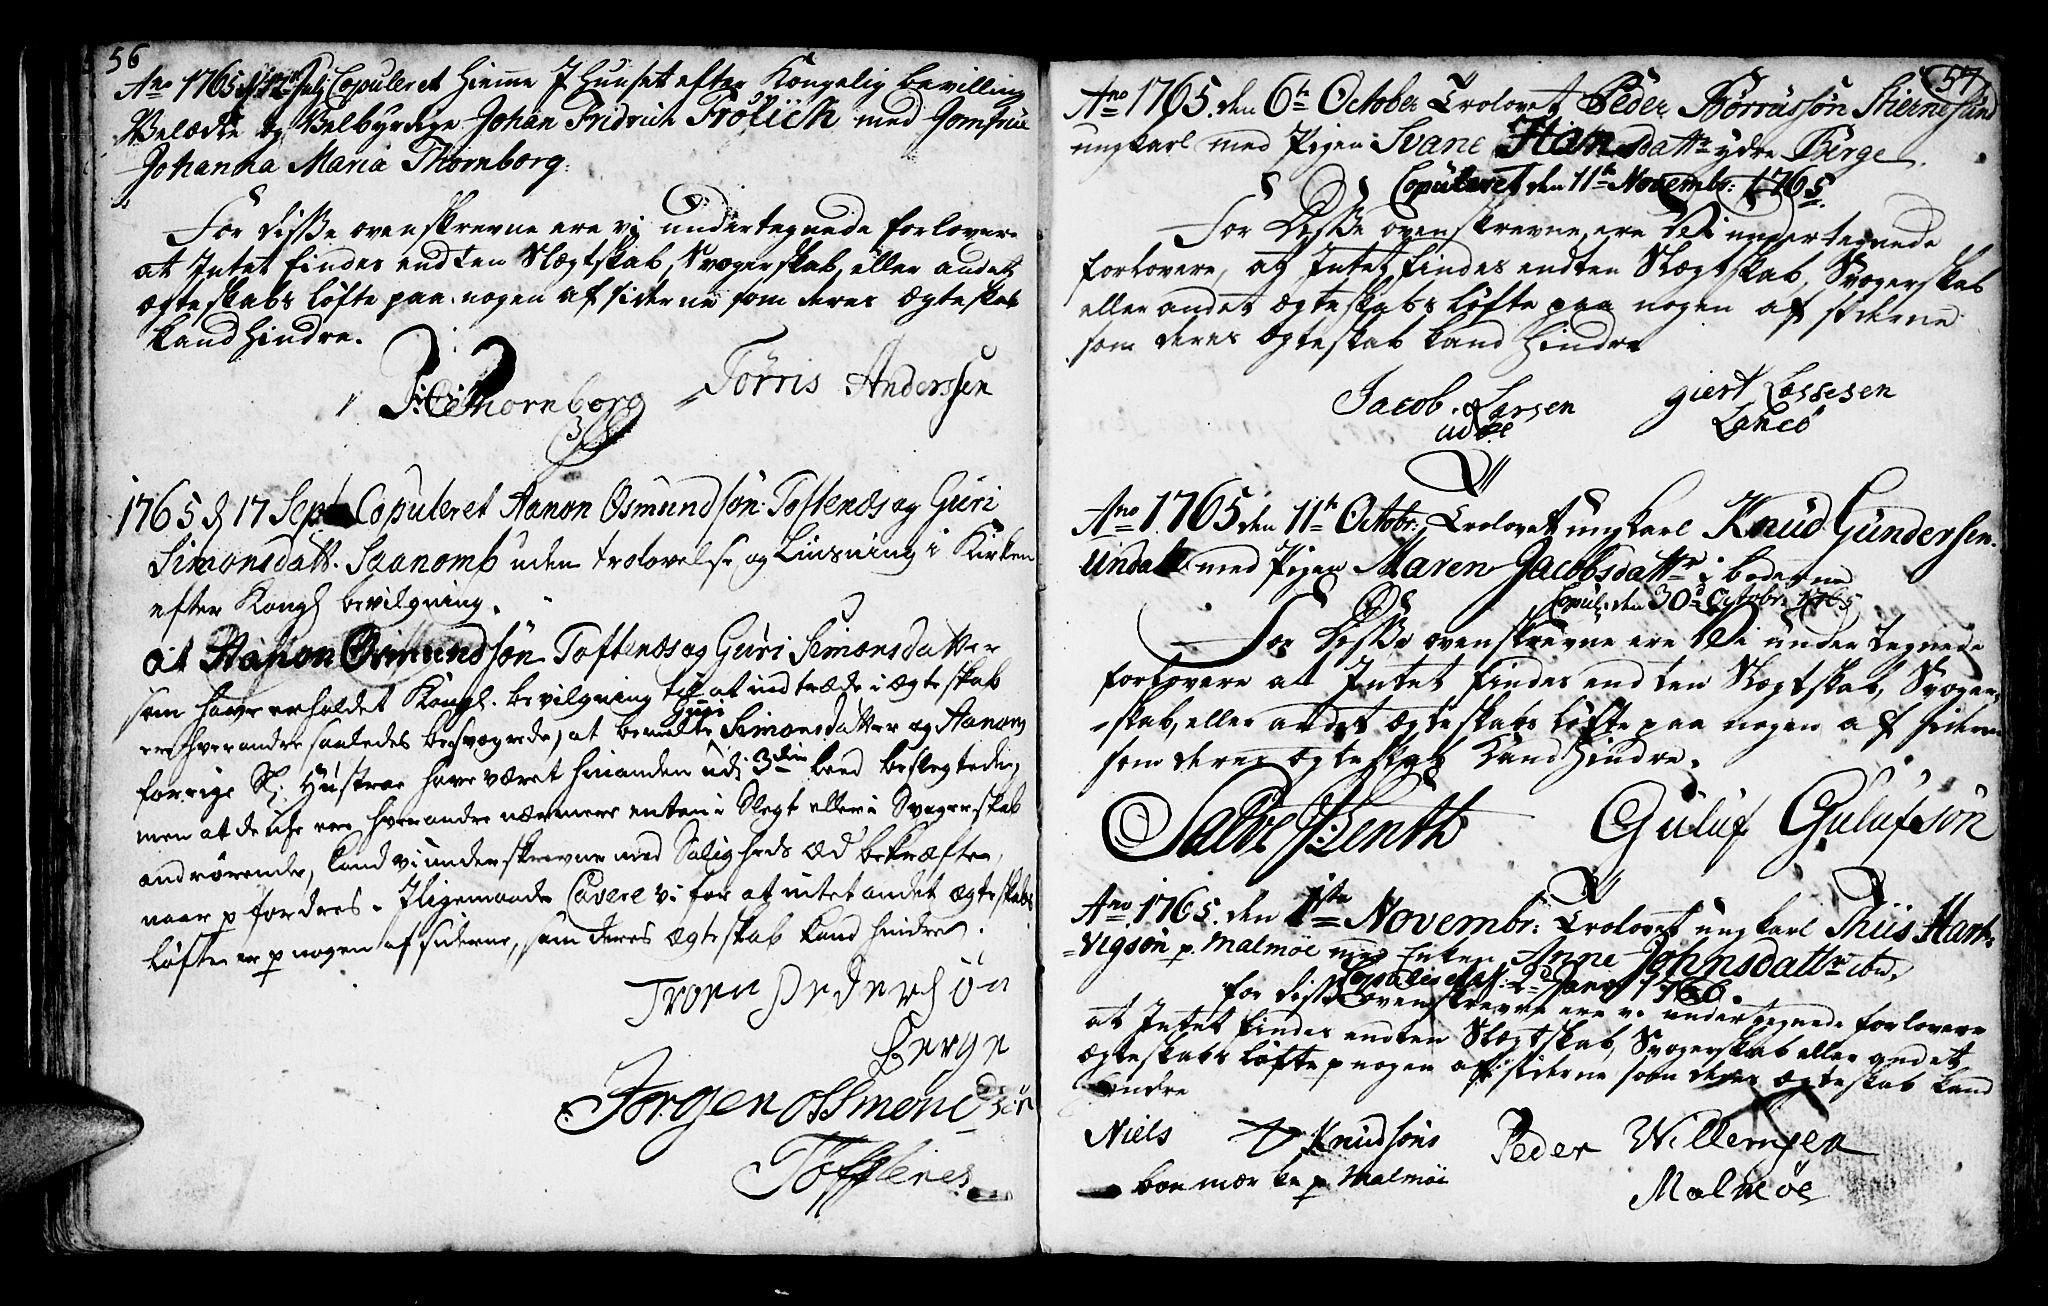 56
Ano 1765 d Julj Copuleret hiemme J Huuset efter Kongelig bevilling
Velædle og Velbyrdige Johan Fridrich Frölich med Jomfrue
Johanna Maria Thornborg.
For disse ovenskrevne ere vi undertegnede forlovere
at Intet findes endten Slægtskab, Svogerskab, eller andet
ægteskabs løfte paa nogen af siderne som deres ægteskab
kand hindre.
Thornborg Törris Anderssen
1765 d 17 Sept Copuleret Aanon Osmundsön Toftenes og Guri
Simonsdatt. Saanomb uden trolovelse og Liusning i Kirken
efter Kongl bevilgning.
at Aanon Osmundsön Toftenes og Guri Simonsdatter
som have erholdet Kongl. bevilgning til at indtræde i ægteskab
ere hverandre saaledes besvogrede, at bemelte Guri Simonsdatter og Aanons
forrige Sl. Hustrue have været hinanden udi 3die leed beslegtede,
men at de ere hverandre nærmere enten i Slegt eller i Svogerskab
andrörende, kand vi underskrevne med Saligheds æd bekræfte,
naar p fordres. Jligemaade Cavere vi for at intet andet ægteskabs
løfte er p nogen af siderne, som deres ægteskab kand hindre.
Troen Pedersön
Berge
Jörgen Ossmondsön
Töfftenes
57
Ano 1765. den 6te October Trolovet Peder Börrüssön Stiernesund
ungkarl med Pigen Svane Hansdattr ydre Berge.
Copuleret den 11te Novembr: 1765.
For Disse ovenskrevne, ere Vi undertegnede
forlovere, at Intet findes endten Slægtskab, Svogerskab
eller andet ægteskabs løfte paa nogen af siderne
som deres ægteskab kand hindre
Jacob Larsen giert Lassesen
udöe Lancö
Ano 1765 den 11te Octobr: Trolovet ungkarl Knud Gundersen
Undal med Pigen Maren Jacobsdattr i boderne
Copul: den 30d Octobr. 1765
For Disse ovenskrevne ere Vi undertegnede
forlovere at Intet findes endten Slægtskab, Svoger-
skab, eller andet ægteskabs løfte paa nogen af siderne
som deres ægteskab kand hindre.
Salve P: Lenth Guluf Gulufsön
Ano 1765. den 1ste Novembr: Trolovet ungkarl Thiis Hart-
vigsön p. Malmöe med Enken Anne Johnsdattr ibid.
Copuleret d. 2d Janv 1766.
for disse ovenskrevne ere vi undertegnede forlovere
at Intet findes endten Slægtskab, Svogerskab eller andet
ægteskabs løfte p nogen af siderne som deres ægteskab kand
hindre
Niels Knudsöns Peder Willemsen
boe mærke p Malmöe Malmöe